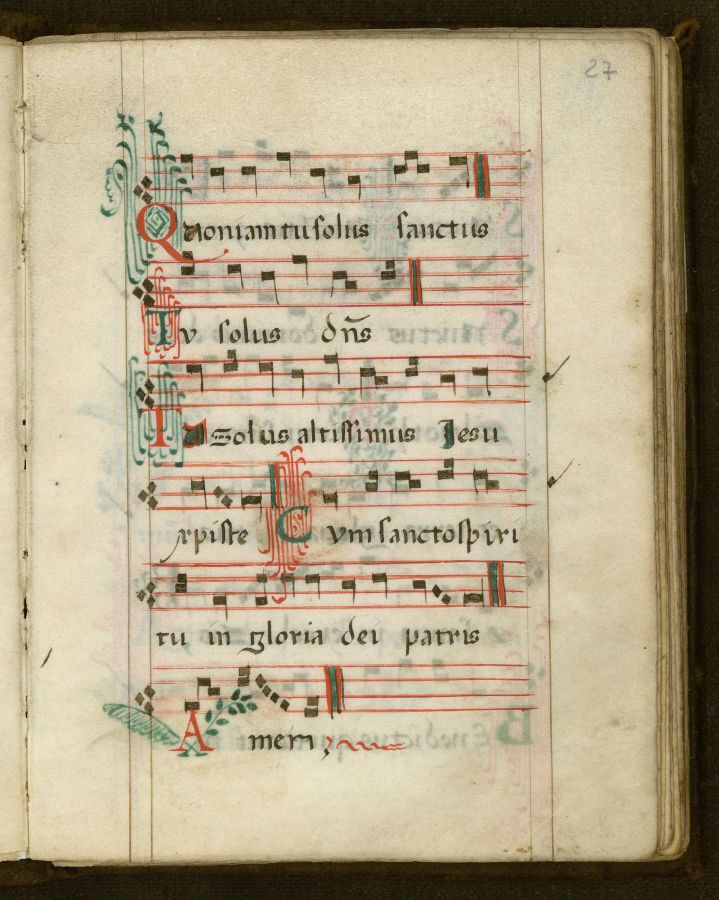 27
Quoniam tu solus sanctus
Tu solus dñs
Tu Solus altissimus Jesu
xpiste Cum sancto spiri
tu in gloria dei patris
Amen;